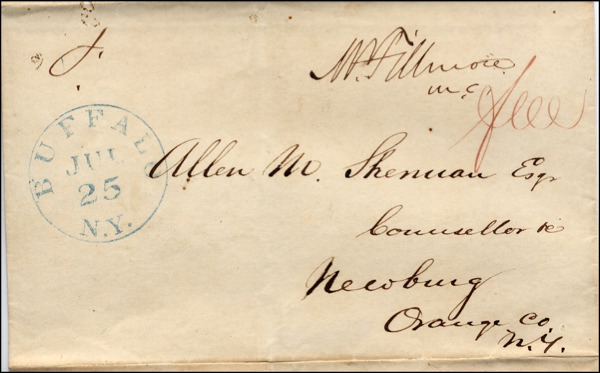 M. Fillmore
M C
free
BUFFALO
JUL
25
N.Y.
Allen M. Sherman Esqr
Counsellor &c
Newburg
Orange Co.
N.Y.